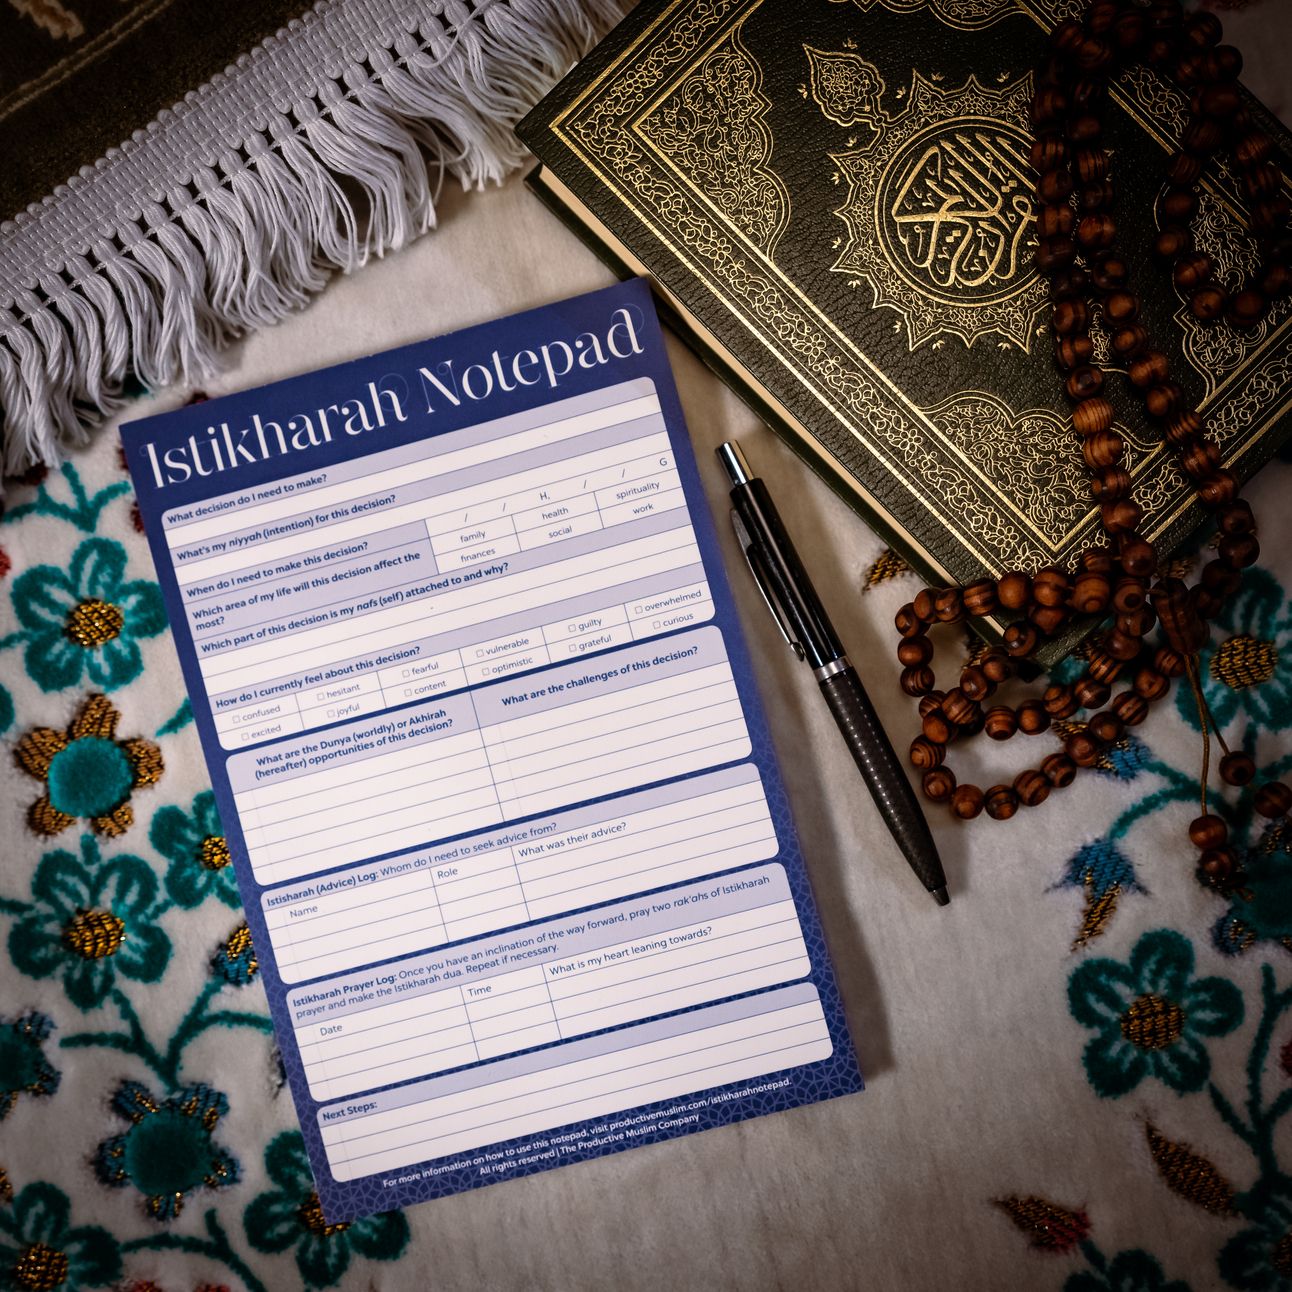 Istikharah Notepad
What decision do I need to make?
What's my niyyah (intention) for this decision?
When do I need to make this decision?
/ / H, / / G
Which area of my life will this decision affect the
most?
family health spirituality
finances social work
Which part of this decision is my nafs (self) attached to and why?
How do I currently feel about this decision?
☐ confused ☐ hesitant ☐ fearful ☐ vulnerable ☐ guilty ☐ overwhelmed
☐ excited ☐ joyful ☐ content ☐ optimistic ☐ grateful ☐ curious
What are the Dunya (worldly) or Akhirah
(hereafter) opportunities of this decision?
What are the challenges of this decision?
Istisharah (Advice) Log: Whom do I need to seek advice from?
Name Role What was their advice?
Istikharah Prayer Log: Once you have an inclination of the way forward, pray two rak'ahs of Istikharah
prayer and make the Istikharah dua. Repeat if necessary.
Date Time What is my heart leaning towards?
Next Steps:
For more information on how to use this notepad, visit productivemuslim.com/istikharahnotepad.
All rights reserved | The Productive Muslim Company